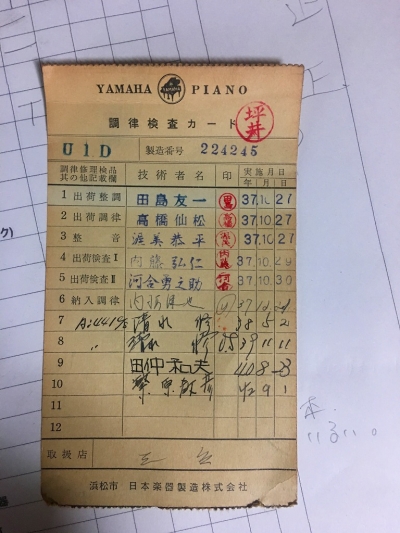 YAMAHA PIANO
調律検査カード
坪井
U1D 製造番号 224245
調律修理検品 其の他記載欄 技術者名 印 実施月日 年月日
1 出荷整調 田島友一 37.10 27
2 出荷調律 高橋仙松 37.10 27
3 整音 渥美恭平 37.10 27
4 出荷検査I 内藤弘仁 内藤 37.10 29
5 出荷検査II 河合勇之助 河合 37.10 30
6 納入調律 37 12
7 A:441% 清水 38 5 2
8 〃 清水 39 11 11
9 田仲和夫 40 8
10 42 9 1
11
12
取扱店
浜松市 日本楽器製造株式会社